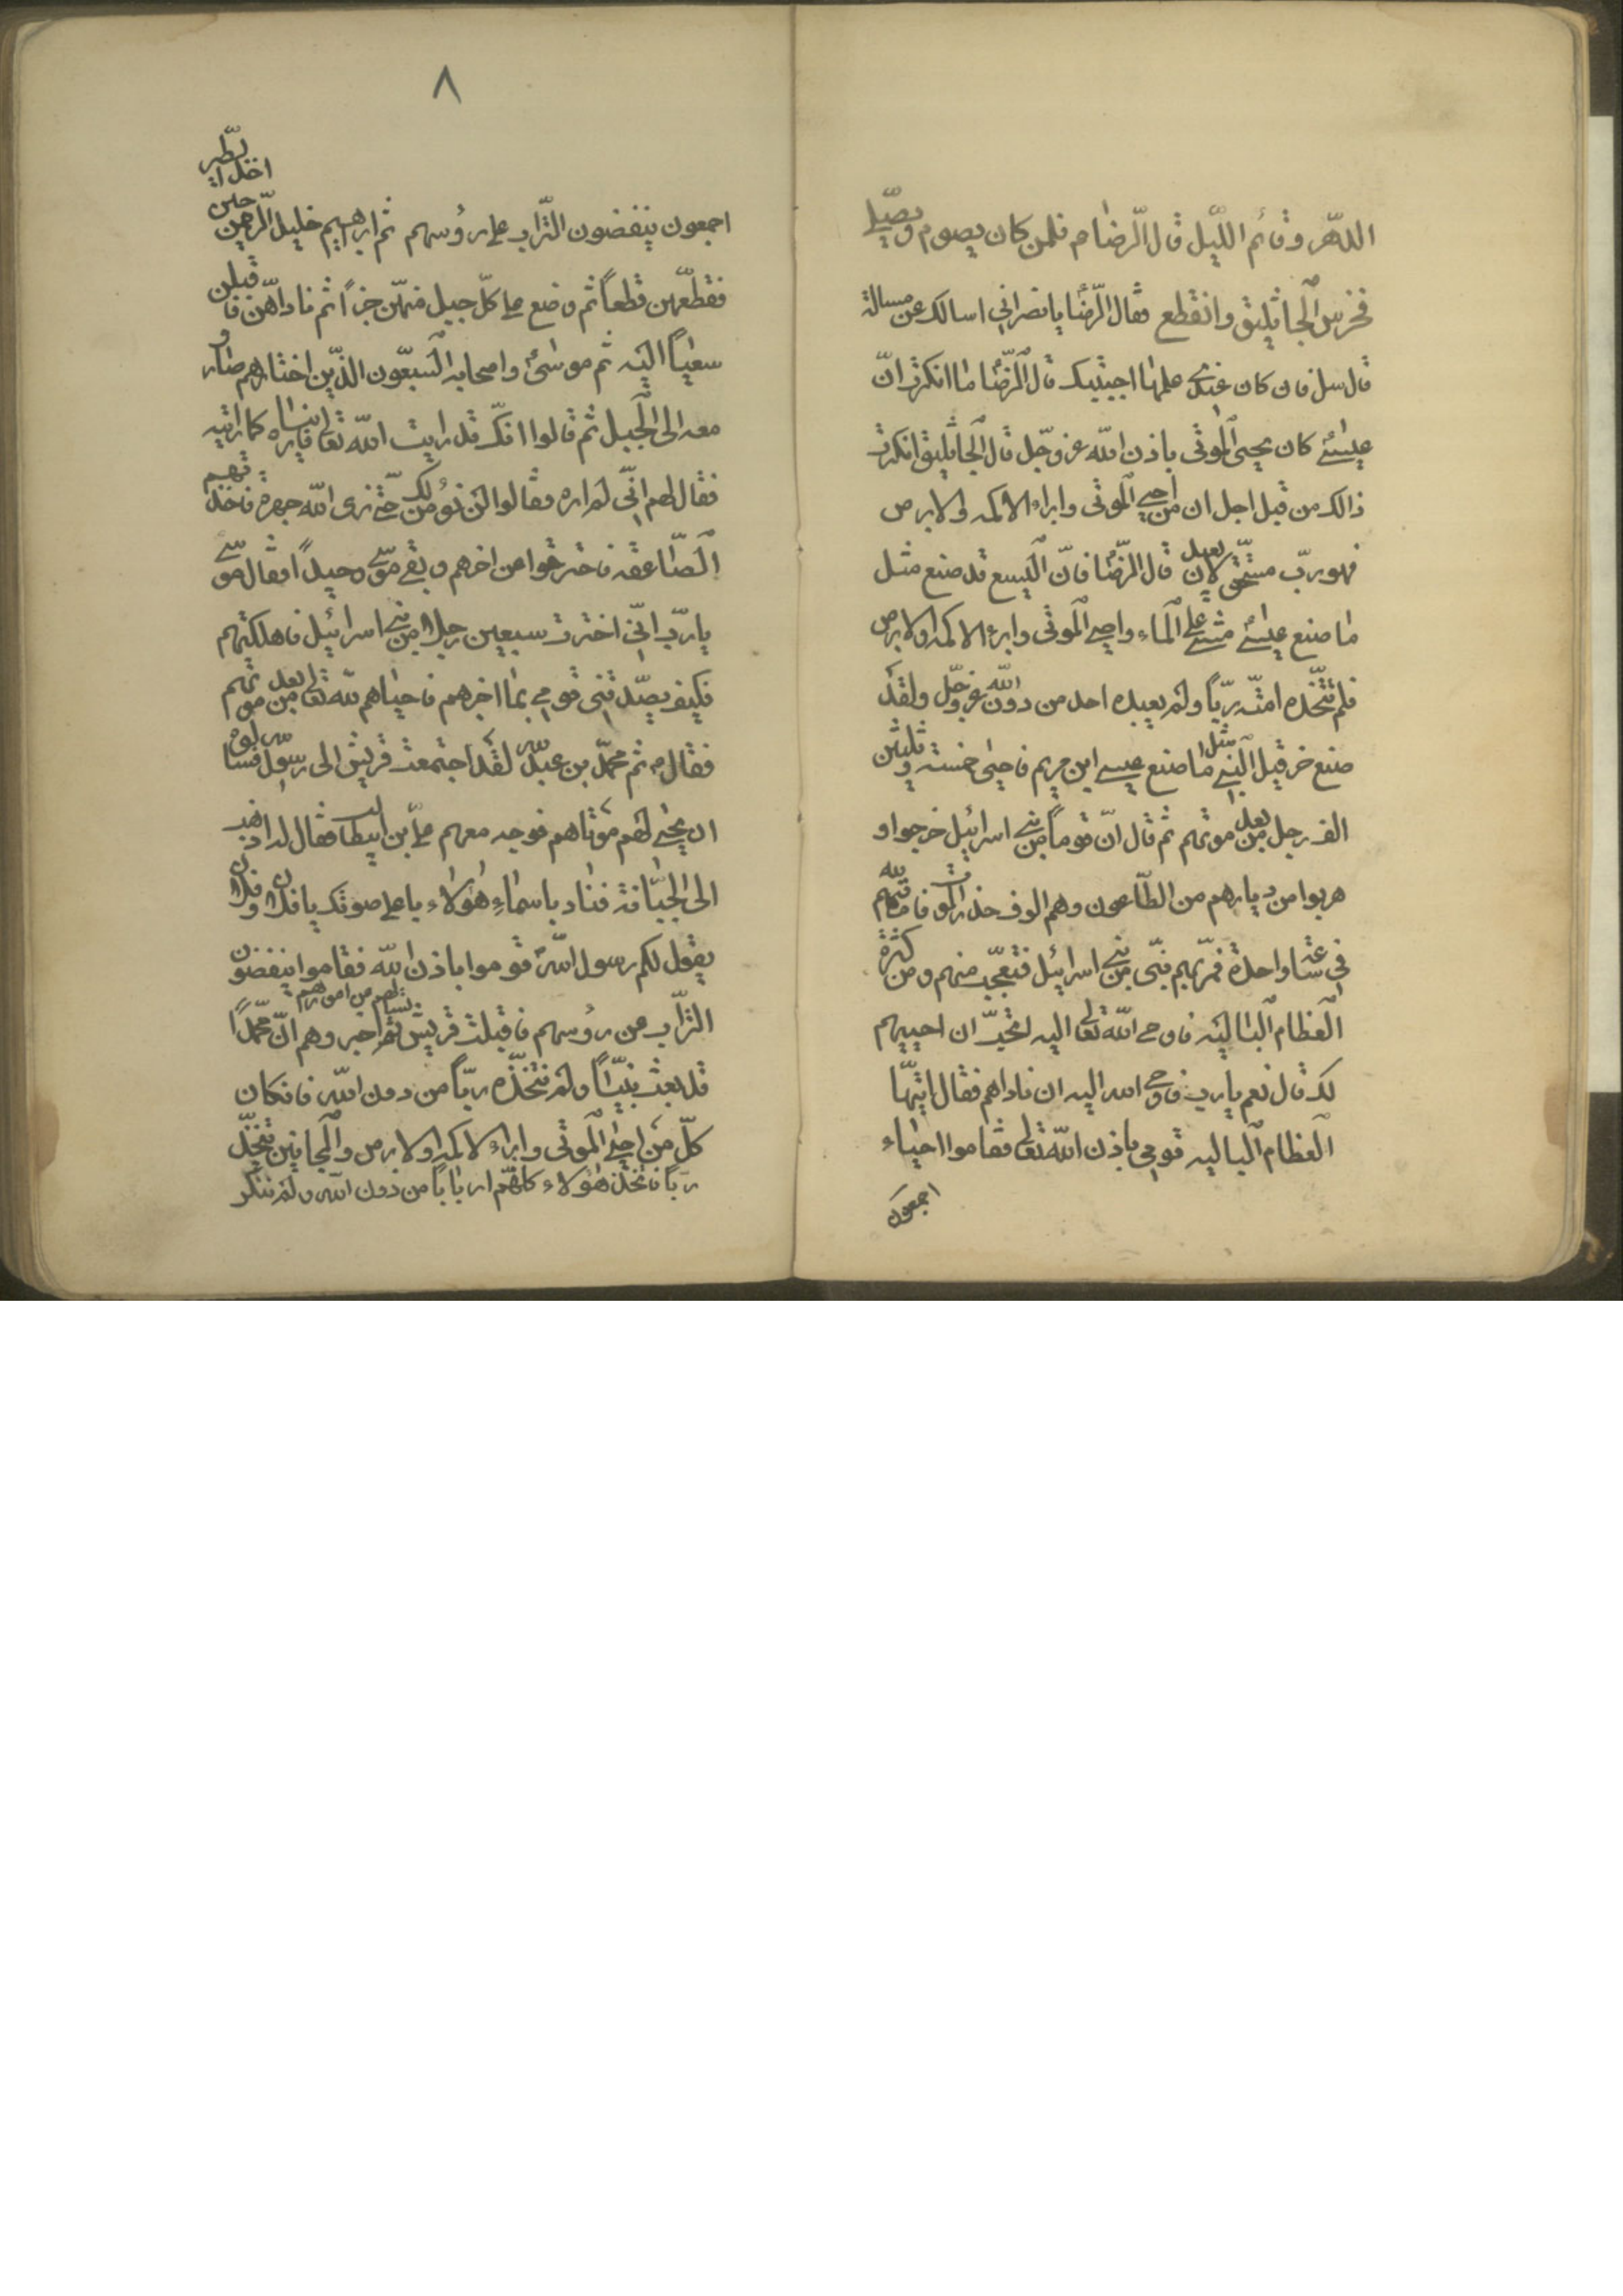 الدّهر وقائم اللّيل قال الرّضا م فلمن كان يصوم ويصلّي
فخرس الجاثليق وانقطع فقال الرّضا يا نصراني اسالك عن مسالة
قال سل فان كان عندي علمها اجبتك قال الرّضا ما انكرت انّ
عيسى كان يحيي الموتى باذن الله عز وجّل قال الجاثليق انكرت
ذالك من قبل اجل ان من احيي الموتى وابراء الاكمه والابرص
فهو ربّ مستحق لان يعبد قال الرّضا فانّ اليسع قد صنع مثل
ما صنع عيسى مشي على الماء واحيي الموتى وابرء الاكمه والابرص
فلم تتّخذه امّته ربّاً ولم يعبده احد من دون الله عزوجّل ولقد
صنع حزقيل النبي مثل ما صنع عيسى ابن مريم فاحيى خمسة وثلثين
الف رجل من بعد موتهم ثم قال انّ قوماً من بني اسرائيل خرجوا و
هربوا من ديارهم من الطّاعون وهم الوف حذر الموت فاماتهم الله
في ساعة واحدة فمرّ بهم نبّى من بني اسرائيل فتعجّب منهم ومن كثرة
العظام البالية فاوحى الله تعالى اليه اتحبّ ان احييهم
لك قال نعم يا رب فاوحى الله اليه ان ناداهم فقال ايّتها
العظام الباليه قومي باذن الله تعالى فقاموا احياء
اجمعون
٨
اجمعون ينفضون التّراب على رؤسهم ثم ابراهيم خليل الرّحمن حين اخذ الطّير
فقطعّهن قطعاً ثم وضع على كلّ جبل منهّن جزءاً ثم ناداهّن فاقبلن
سعياً اليه ثم موسى واصحابه السّبعون الذّين اختارهم صاروا
معه الى الجبل ثم قالوا انّك قد رايت الله تعالى فارناه كما رايته
فقال لهم انّي لم اره فقالوا لن نؤمن لك حتّى نرى الله جهرة فاخذتهم
الصّاعقه فاحترقوا من اخرهم وبقي موسّى وحيداً فقال موسّى
يا ربّ انّي اخترت سبعين رجلا من بني اسرائيل فاهلكتهم
فكيف يصّدقني قومي بما اخبرهم فاحياهم الله تعالى من بعد موتهم
فقال م ثم محمّد بن عبد الله لقد اجتمعت قريش الى رسول الله فسالوه
ان يحيي لهم موتاهم فوجه معهم علّي بن ابيطالب فقال له اذهب
الى الجبّانة فناد باسماء هؤلاء باعلى صوتك يا فلان وفلان
يقول لكم رسول الله قوموا باذن الله فقاموا ينفضون
التّراب من رؤسهم فاقبلت قريش تسئلهم من امورهم ثم اخبروهم انّ محمّداً
قد بعث نبيّاً ولم نتخذّه ربّاً من دون الله فان كان
كلّ من احيى الموتى وابراء الاكمه والابرص والمجانين تتخّذ
ربّاً فاتخذ هؤلاء كلهّم ارباباً من دون الله ولم ننكر